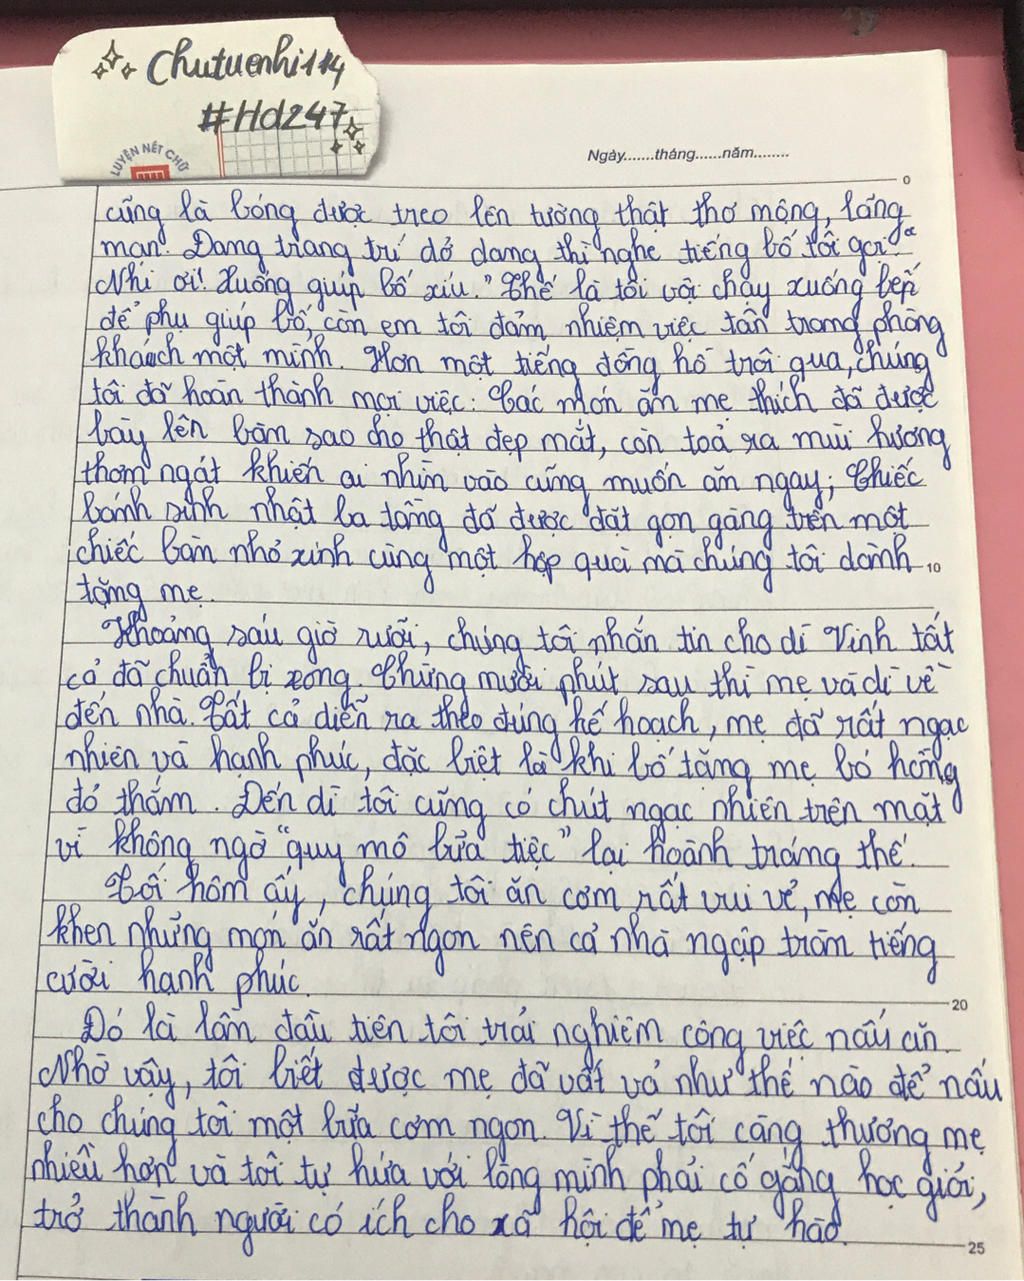 Chutuenhi114
#Hd247
LUYỆN NÉT CHỮ
Ngày.......tháng......năm........
0
cũng là bóng được treo lên tường thật thơ mộng, lãng
mạn. Đang trang trí dở dang thì nghe tiếng bố tôi gọi: "
Nhi ơi! Xuống giúp bố xíu." Thế là tôi vội chạy xuống bếp
để phụ giúp bố, còn em tôi đảm nhiệm việc tân trang phòng
khách một mình. Hơn một tiếng đồng hồ trôi qua, chúng
tôi đã hoàn thành mọi việc: Các món ăn mẹ thích đã được
bày lên bàn sao cho thật đẹp mắt, còn toả ra mùi hương
thơm ngát khiến ai nhìn vào cũng muốn ăn ngay; Chiếc
bánh sinh nhật ba tầng đã được đặt gọn gàng trên một
chiếc bàn nhỏ xinh cùng một hộp quà mà chúng tôi dành
10
tặng mẹ.
Khoảng sáu giờ rưỡi, chúng tôi nhắn tin cho dì Vinh tất
cả đã chuẩn bị xong. Chừng mười phút sau thì mẹ và dì về
đến nhà. Tất cả diễn ra theo đúng kế hoạch, mẹ đã rất ngạc
nhiên và hạnh phúc, đặc biệt là khi bố tặng mẹ bó hồng
đỏ thắm. Đến dì tôi cũng có chút ngạc nhiên trên mặt
vì không ngờ "quy mô bữa tiệc" lại hoành tráng thế.
Tối hôm ấy, chúng tôi ăn cơm rất vui vẻ, mẹ còn
khen những món ăn rất ngon nên cả nhà ngập tràm tiếng
cười hạnh phúc.
20
Đó là lần đầu tiên tôi trải nghiệm công việc nấu ăn.
Nhờ vậy, tôi biết được mẹ đã vất vả như thế nào để nấu
cho chúng tôi một bữa cơm ngon. Vì thế tôi càng thương mẹ
nhiều hơn và tôi tự hứa với lòng mình phải cố gắng học giỏi,
trở thành người có ích cho xã hội để mẹ tự hào.
25